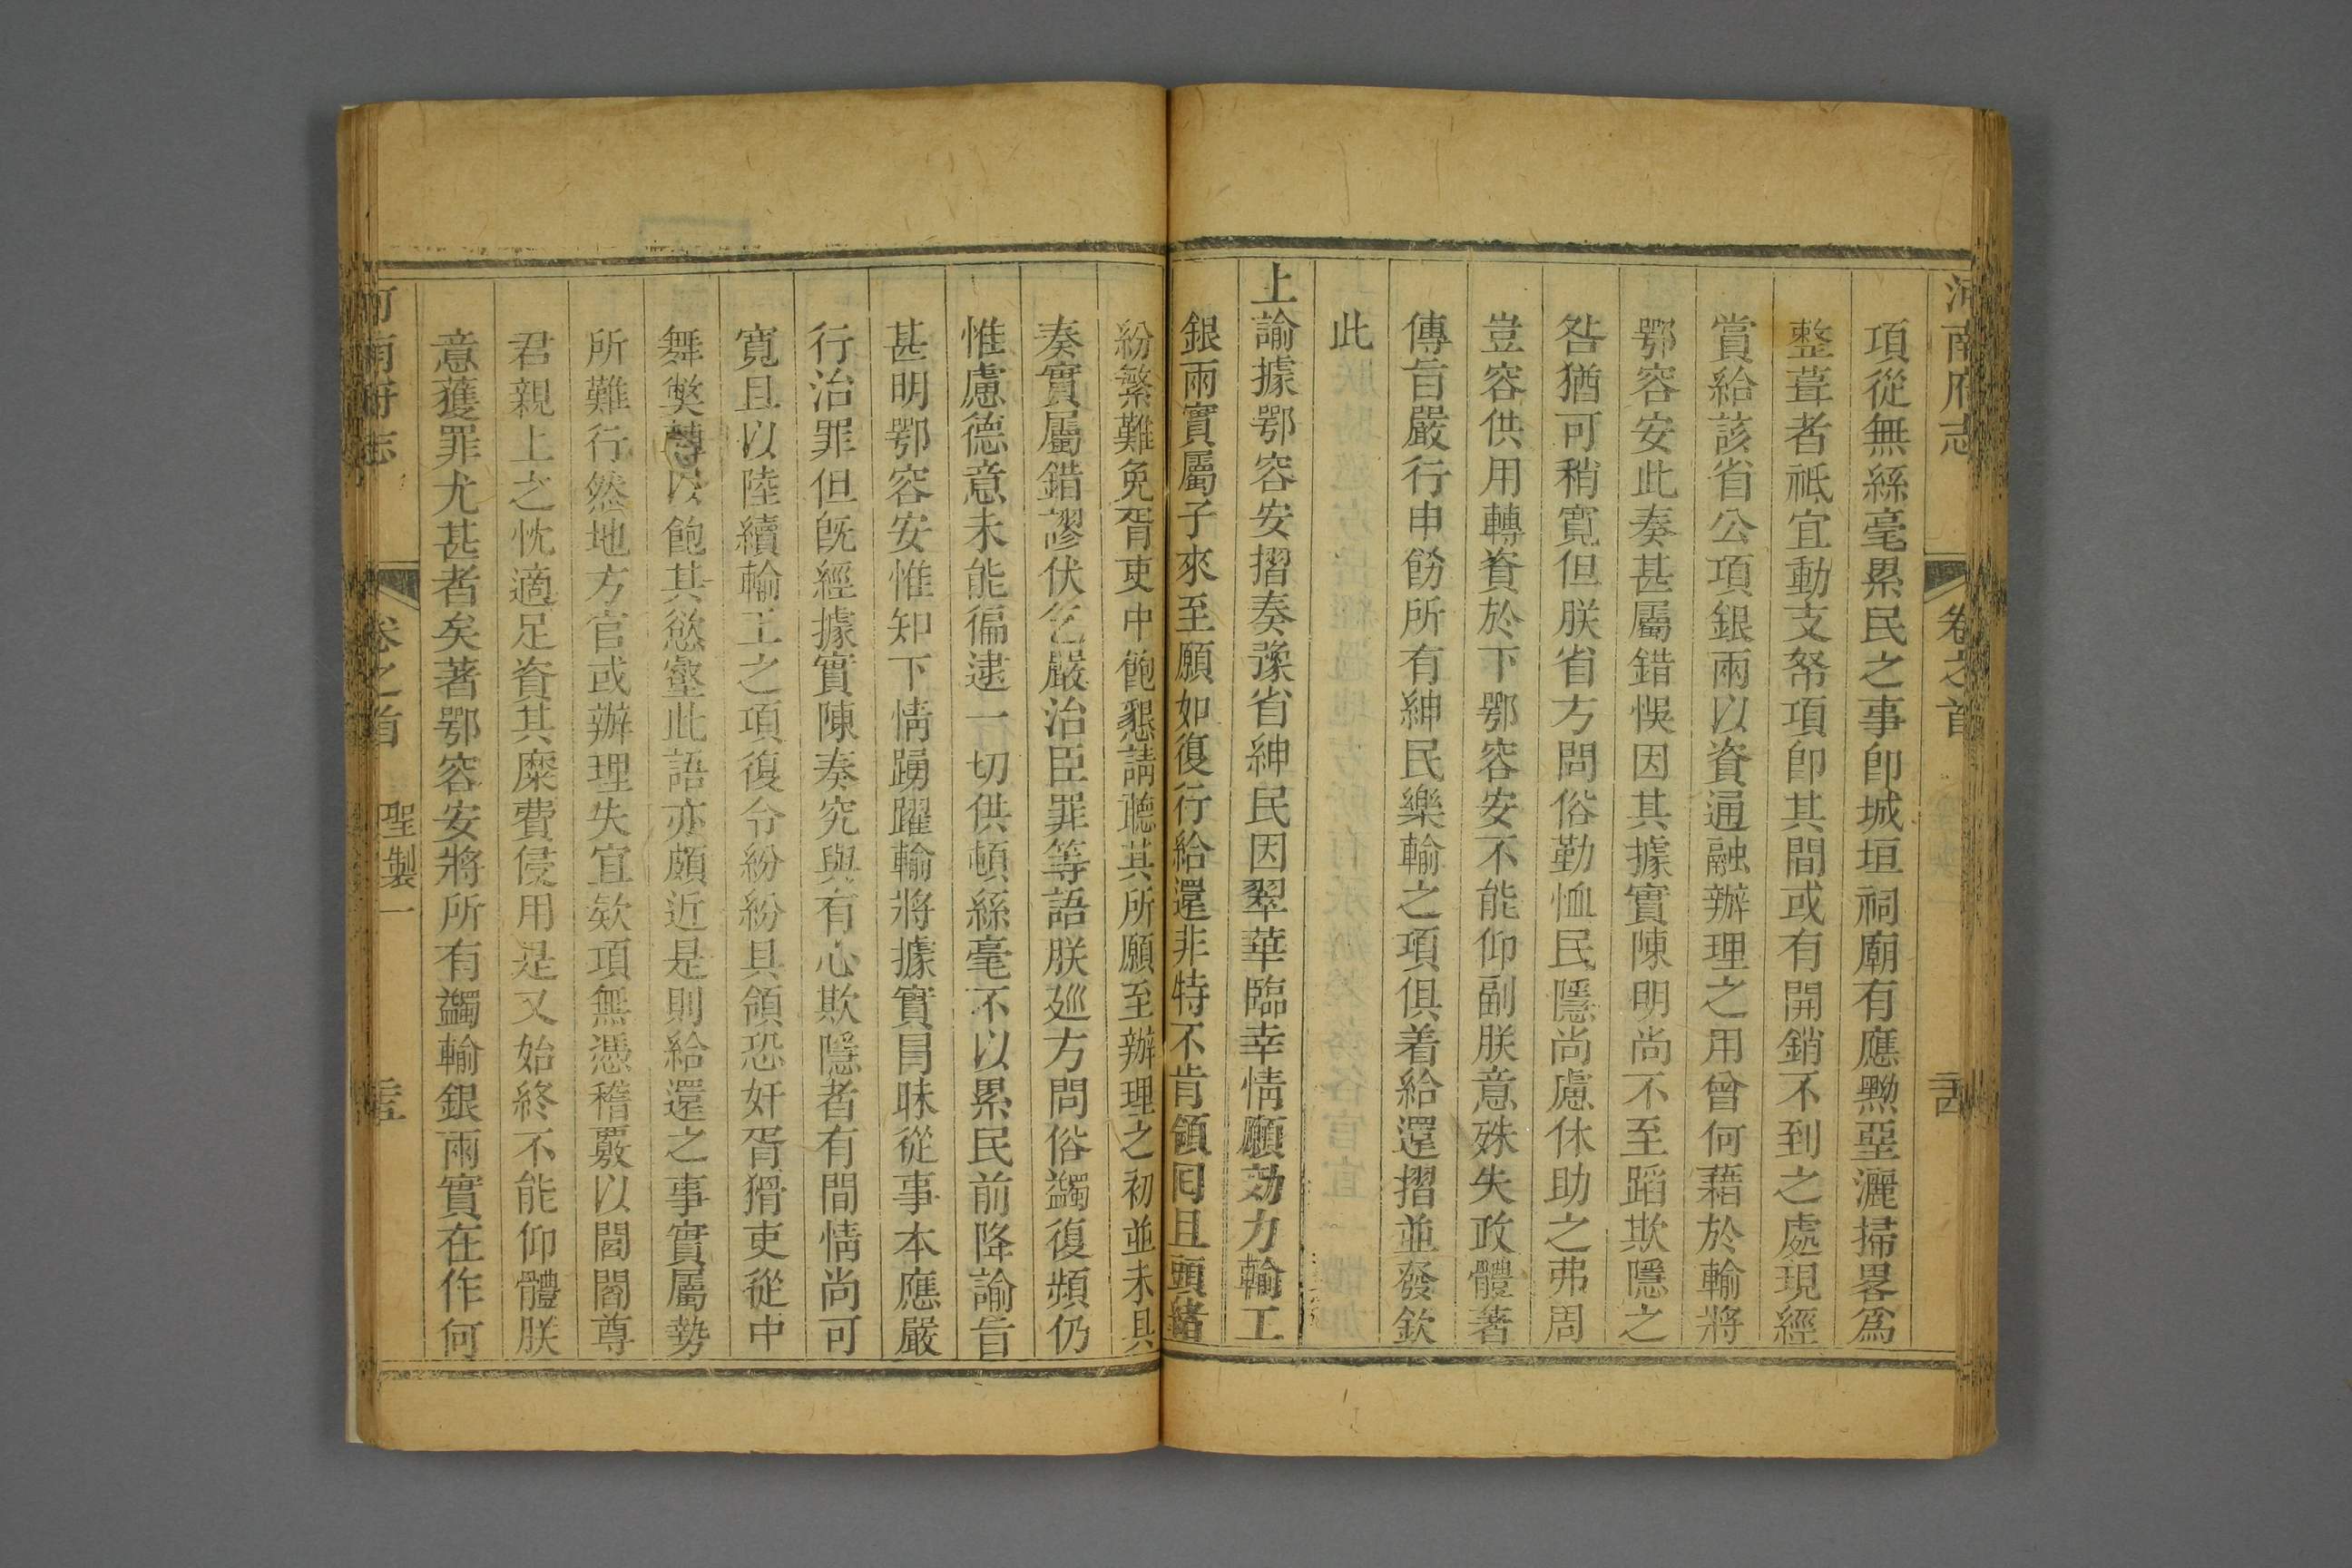 河南府志 卷之首 二十四
項從無絲毫累民之事卽城垣祠廟有應黝堊灑掃畧爲
整葺者祗宜動支帑項卽其間或有開銷不到之處現經
賞給該省公項銀兩以資通融辦理之用曾何藉於輸將
鄂容安此奏甚屬錯悞因其據實陳明尚不至蹈欺隱之
咎猶可稍寬但朕省方問俗勤恤民隱尚慮休助之弗周
豈容供用轉資於下鄂容安不能仰副朕意殊失政體著
傳旨嚴行申飭所有紳民樂輸之項俱着給還摺並發欽
此
上諭據鄂容安摺奏豫省紳民因翠華臨幸情願効力輸工
銀兩實屬子來至願如復行給還非特不肯領囘且頭緒
紛繁難免胥吏中飽懇請聽其所願至辦理之初並未具
奏實屬錯謬伏乞嚴治臣罪等語朕廵方問俗蠲復頻仍
惟慮德意未能徧逮一切供頓絲毫不以累民前降諭旨
甚明鄂容安惟知下情踴躍輸將據實冒昧從事本應嚴
行治罪但旣經據實陳奏究與有心欺隱者有間情尚可
寬且以陸續輸工之項復令紛紛具領恐奸胥猾吏從中
舞獘轉以飽其慾壑此語亦頗近是則給還之事實屬勢
所難行然地方官或辦理失宜欵項無憑稽覈以閭閻尊
君親上之忱適足資其糜費侵用是又始終不能仰體朕
意獲罪尤甚者矣著鄂容安將所有蠲輸銀兩實在作何
河南府志 卷之首 聖製一 二十五